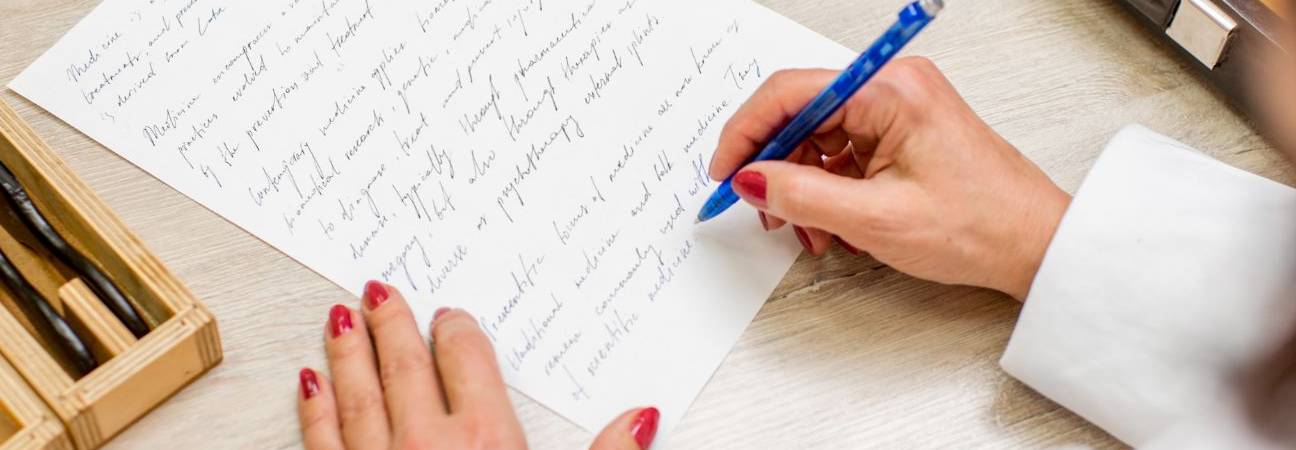 Medicine is a
treatment, and
is derived from Latin
Medicine encompasses a
practices evolved to maintain
by the prevention and treatment
Contemporary medicine applies
biomedical research, genetic, medical
to diagnose, treat and prevent injury
disease, typically through pharmaceuticals
surgery, but also through therapies as
diverse as psychotherapy external splints
Prescientific forms of medicine are now known as
traditional medicine and folk medicine. They
remain commonly used with
of scientific medicine.